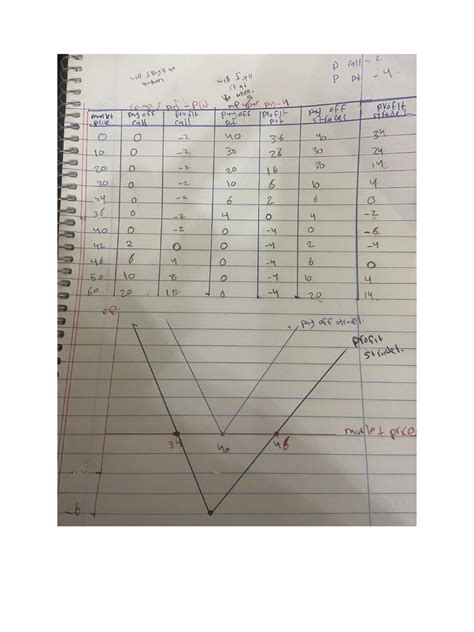 will I Buy it at
will I sell
it at
P call = 2
P put - 4
market price | pay off call | profit call | pay off put | profit put | pay off stradel | profit stradel
0 | 0 | -2 | 40 | 36 | 40 | 34
10 | 0 | -2 | 30 | 26 | 30 | 24
20 | 0 | -2 | 20 | 16 | 20 | 14
30 | 0 | -2 | 10 | 6 | 10 | 4
34 | 0 | -2 | 6 | 2 | 6 | 0
36 | 0 | -2 | 4 | 0 | 4 | -2
40 | 0 | -2 | 0 | -4 | 0 | -6
42 | 2 | 0 | 0 | -4 | 2 | -4
46 | 6 | 4 | 0 | -4 | 6 | 0
50 | 10 | 8 | 0 | -4 | 10 | 4
60 | 20 | 18 | 0 | -4 | 20 | 14
pay off stradel
profit
stradel.
market price
34 40 46
-6